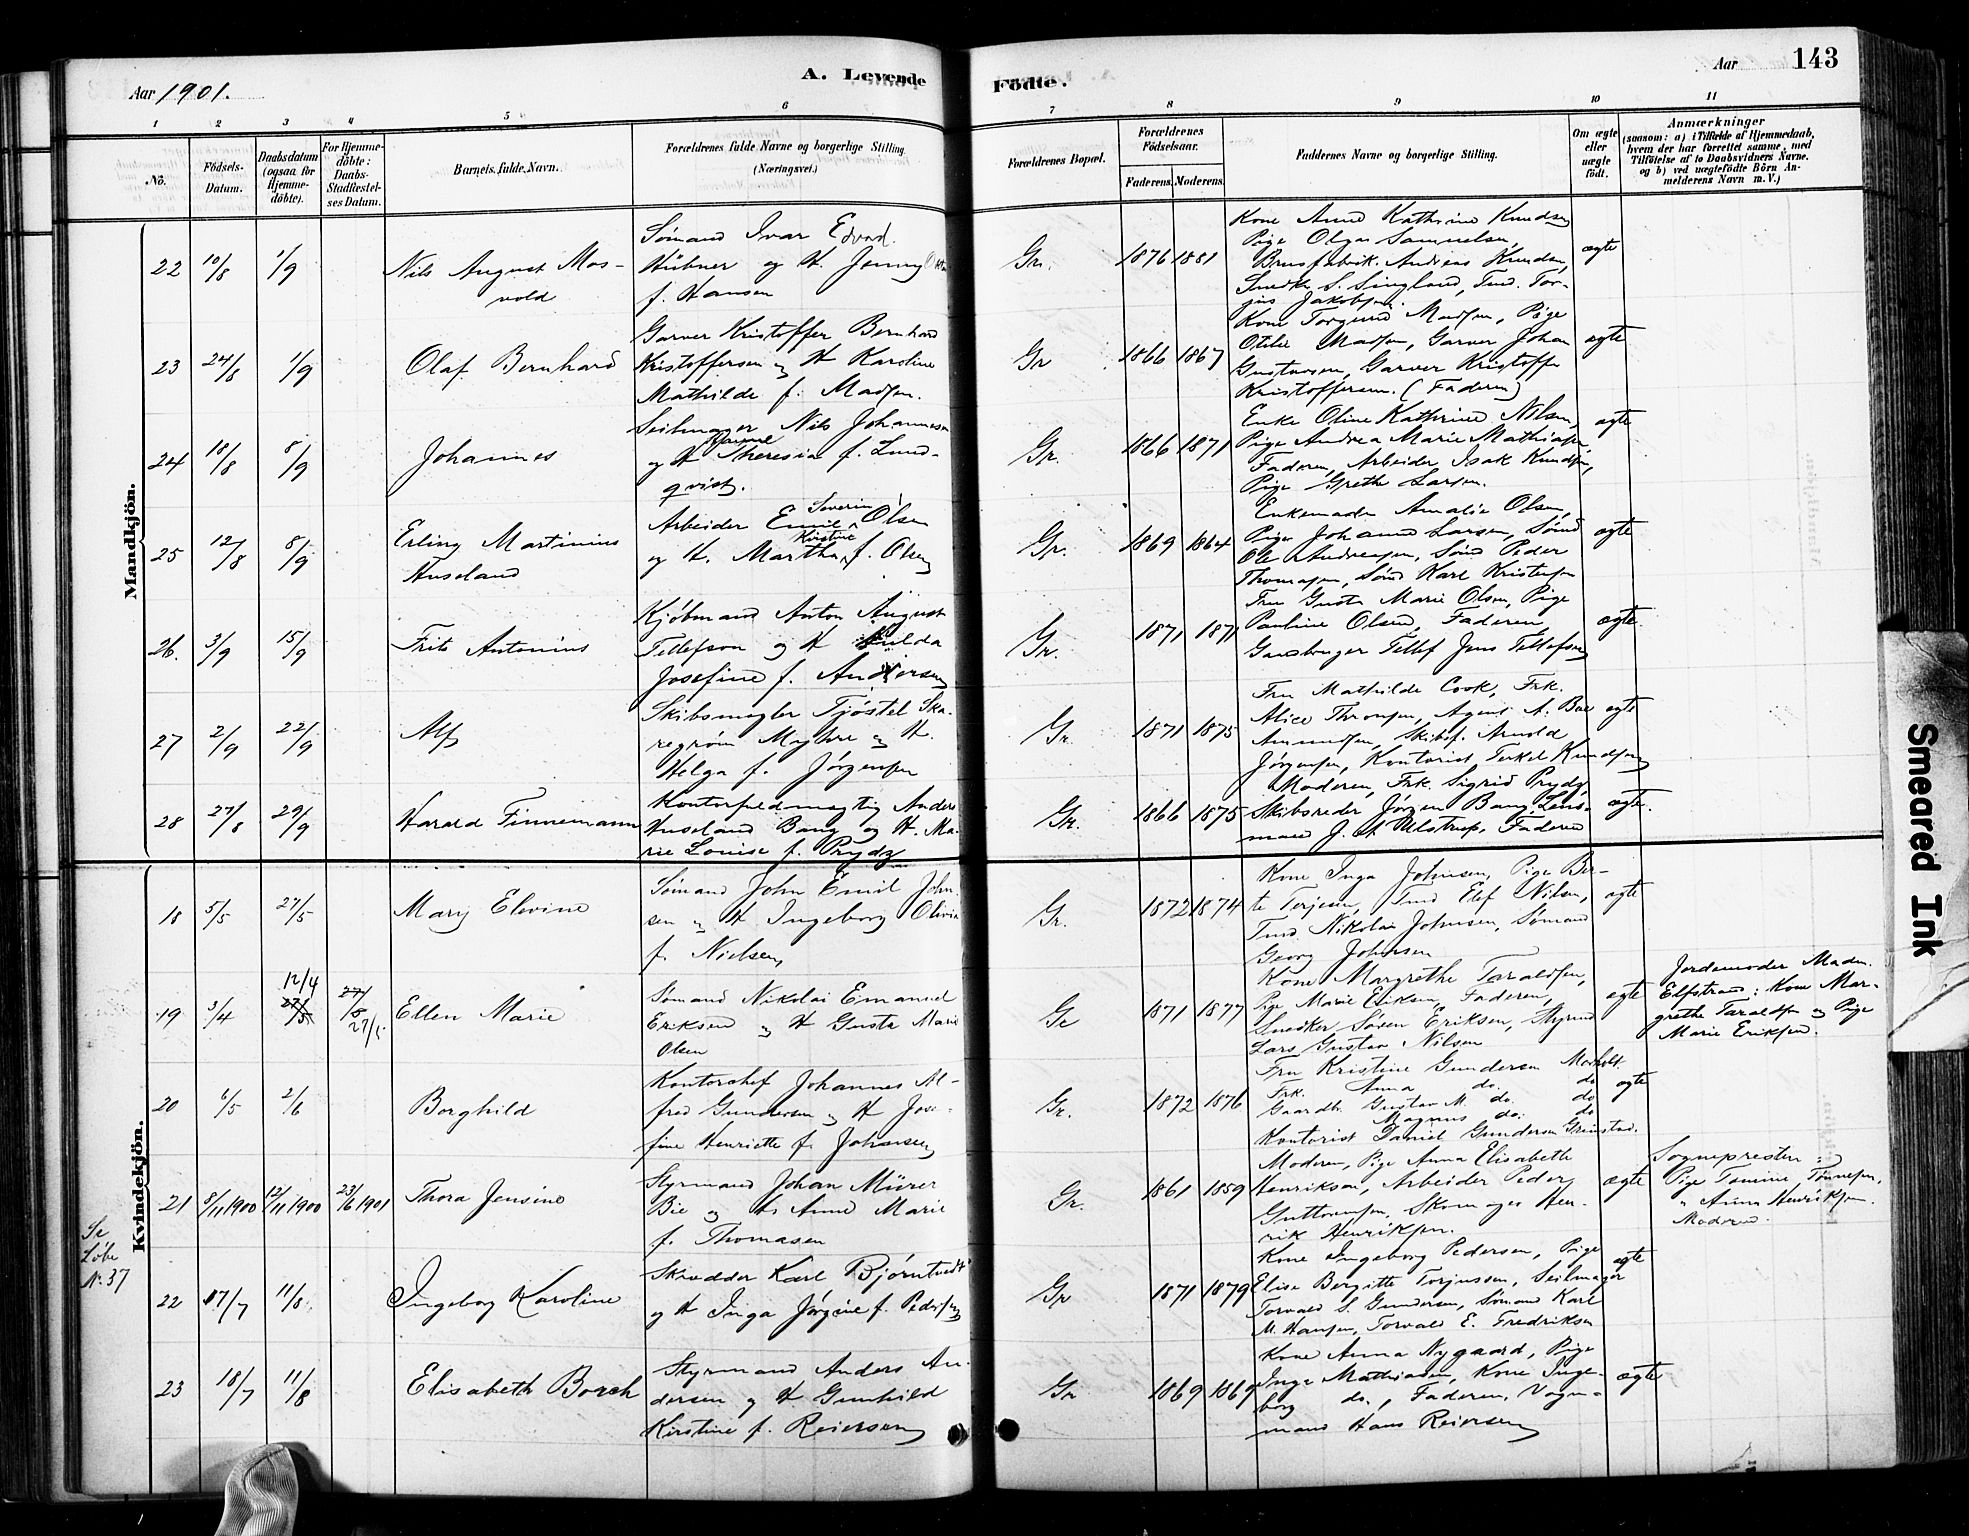 Aar 1901.
A. Levende
Födte.
Aar
143
1 2 3 4 5 6 7 8 9 10 11
No.
Födsels-Datum.
Daabsdatum (ogsaa for Hjemme-döbte).
For Hjemme-döbte: Daabs-Stadfæstel-ses Datum.
Barnets fulde Navn.
Forældrenes fulde Navne og borgerlige Stilling. (Næringsvei.)
Forældrenes Bopæl.
Forældrenes Födselsaar.
Faderens. Moderens.
Faddernes Navne og borgerlige Stilling.
Om ægte eller uægte födt.
Anmærkninger
(saasom: a) i Tilfælde af Hjemmedaab, hvem der har forrettet samme, med Tilföielse af to Daabsvidners Navne. og b) ved uægtefödte Börn An-melderens Navn m. V.)
Mandkjön.
22 10/8 1/9
Nils August Mos-
vold
Sømand Ivar Edvard
Hübner og H. Jenny
f. Hansen
Gr. 1876 1881
Kone Anne Kathrine Knudsen
Pige Olga Samuelsen,
Brusfabrik. Andreas Knudsen,
Snedker S. Singland, Tmd. Tor-
jus Jakobsen.
ægte
23 24/8 1/9
Olaf Bernhard
Garver Kristoffer Bernhard
Kristoffersen og H Karoline
Mathilde f. Madsen.
Gr 1866 1867
Kone Torgund Madsen, Pige
Otilie Madsen, Garver Johan
Gustavsen, Garver Kristoffer
Kristoffersen. (Faderen)
ægte
24 18/8 8/9
Johannes
Seilmager Nils Johannesen
og H Theresia f. Lund-
qvist.
Gr. 1866 1871
Enke Oline Kathrine Nilsen,
Pige Andrea Marie Mathiasen,
Faderen, Arbeider Isak Knudsen,
Pige Grethe Larsen.
ægte
25 12/8 8/9
Erling Martinius
Huseland
Arbeider Emil Severin Olsen
og H. Martha Kirstine f. Olsen
Gr. 1869 1864
Enkemadam Amalie Olsen,
Pige Johanne Larsen, Sømd
Ole Andreasen, Sømd Peder
Thomasen, Sømd Karl Kristensen
ægte
26. 3/9 15/9
Frits Antonius
Kjøbmand Anton August
Tellefsen og H Hulda
Josefine f. Andersen
Gr. 1871 1871
Fru Gusta Marie Olsen, Pige
Pauline Olsen, Faderen,
Gaardbruger Tellef Jens Tellefsen
ægte.
27 2/9 22/9
Alf
Skibsmægler Tjøstel Ska-
regrøm Myhre og H.
Helga f. Jörgensen
Gr. 1871 1875
Fru Mathilde Cook, Frk.
Alice Thronsen, Agent A. Boe
Amundsen, Skibsf. Arnold
Jörgensen, Kontorist Terkel Knudsen
ægte
28 27/8 29/9
Harald Finnemann
Kontorfuldmægtig Anders
Huseland Bang og H. Ma-
rie Louise f. Prydz
Gr. 1866 1875
Moderen, Frk. Sigrid Prydz,
Skibsreder Jørgen Bang, Lens-
mand J. A. Ulstrup, Faderen
ægte.
Kvindekjön.
18 5/5 27/5
Mary Elevine
Sømand John Emil John-
sen og H Ingeborg Olivia
f. Nielsen,
Gr. 1872 1874
Kone Inga Johnsen, Pige Ber-
te Terjesen, Tmd Elef Nilsen,
Tmd. Nikolai Johnsen, Sømand
Georg Johnsen
ægte
19 3/4 12/4 27/5 27/5
Ellen Marie
Sømand Nikolai Emanuel
Eriksen og H Gusta Marie
Olsen
Gr 1871 1877
Kone Margrethe Taraldsen,
Pige Marie Eriksen, Faderen,
Snedker Søren Eriksen, Styrmd
Lars Gustav Nilsen
ægte
Jordemoder Madm.
Elfstrand: Kone Mar-
grethe Taraldsen og Pige
Marie Eriksen.
20 6/5 2/6
Borghild
Kontorchef Johannes Al-
fred Gundersen og H Jose-
fine Henriette f. Johansen
Gr. 1872 1876
Fru Kristine Gundersen Morholt
Frk. Anna do. do
Gaardb. Gustav M. do. do
Magnus do: do
Kontorist Daniel Gundersen Grimstad.
ægte
21 8/11 1900 12/11 1900 23/6 1901
Thora Jensine
Styrmand Johan Mürer
Bie og H. Anne Marie
f. Thomasen
Gr. 1861 1859
Moderen, Pige Anna Elisabeth
Henriksen, Arbeider Peder
Guttormsen, Skomager Hen-
rik Henriksen.
ægte
Sognepresten:
Pige Tomine Tønnesen,
" Anna Henriksen.
Moderen.
Se
Løbe
No. 37
22 17/7 11/8
Ingeborg Karoline
Skrædder Karl Bjørntvedt
og H Inga Jørgine f. Pedersen
Gr 1871 1879
Kone Ingeborg Pedersen, Pige
Elise Bergitte Torjussen, Seilmager
Torvald S. Gundersen, Sømand Karl
M. Hansen, Torvald E. Fredriksen
ægte
23 18/7 11/8
Elisabeth Borch
Styrmand Anders An-
dersen og H Gunhild
Kirstine f. Reiersen
Gr 1869 1869
Kone Anna Nygaard, Pige
Inga Mathiasen, Kone Inge-
borg do., Faderen, Vogn-
mand Hans Reiersen
ægte
Smeared Ink